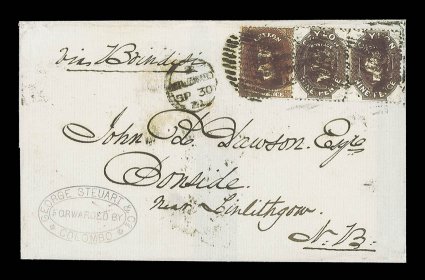 via Brindisi
SP 30
71
CEYLON
John D. Dawson. Esqre
Donside.
near Linlithgow.
N. B.
GEORGE STEUART & Co
FORWARDED BY
COLOMBO